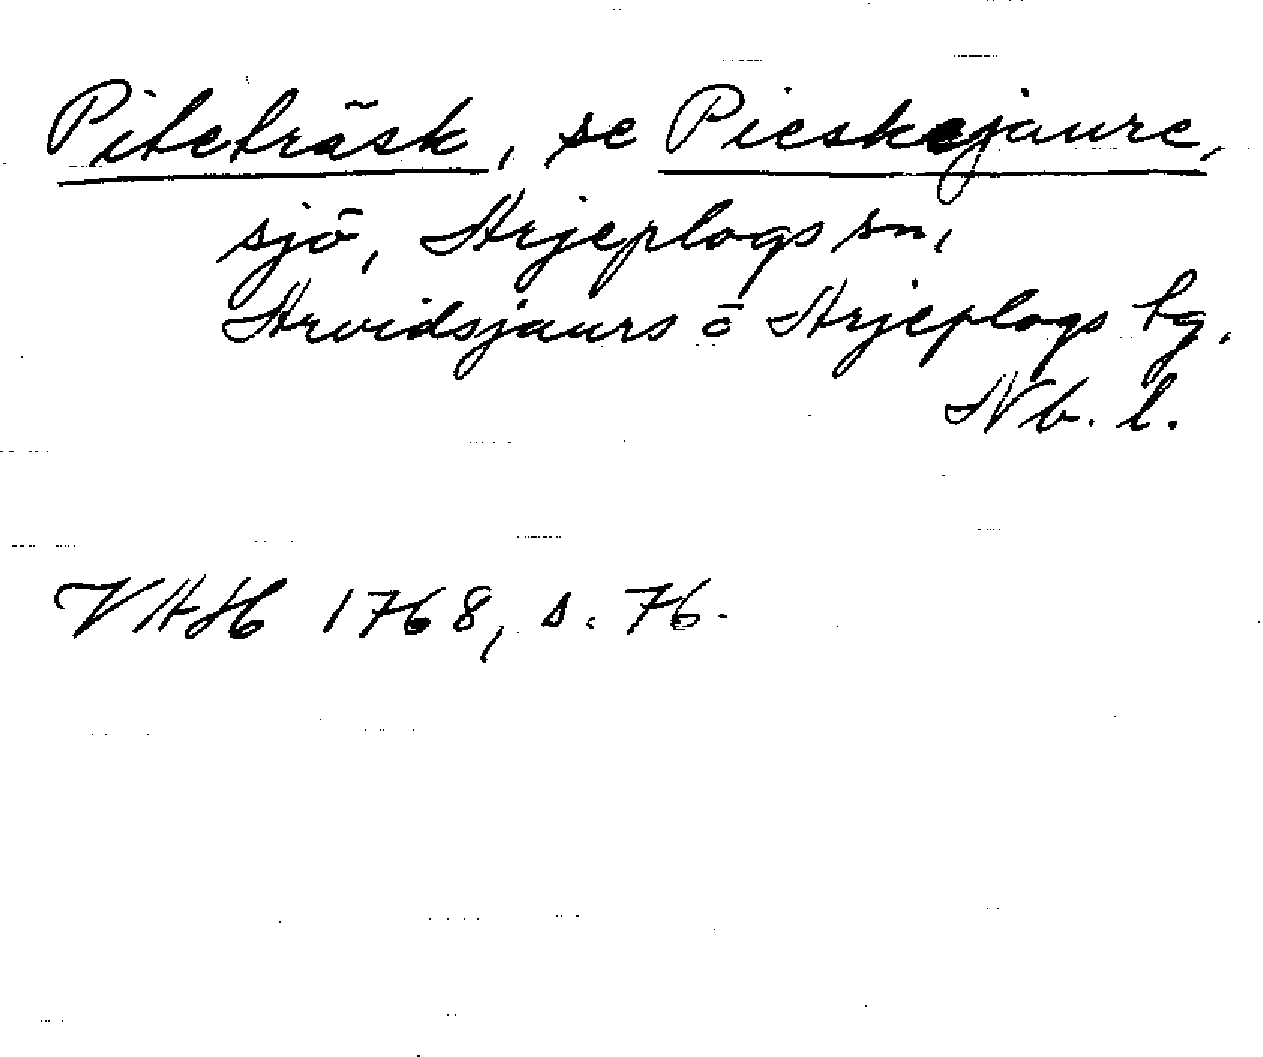 Piteträsk, se Pieskejaure,
sjö, Arjeplogs sn,
Arvidsjaurs ö Arjeplogs lg.
Nb. l.
VAH 1768, s. 76.